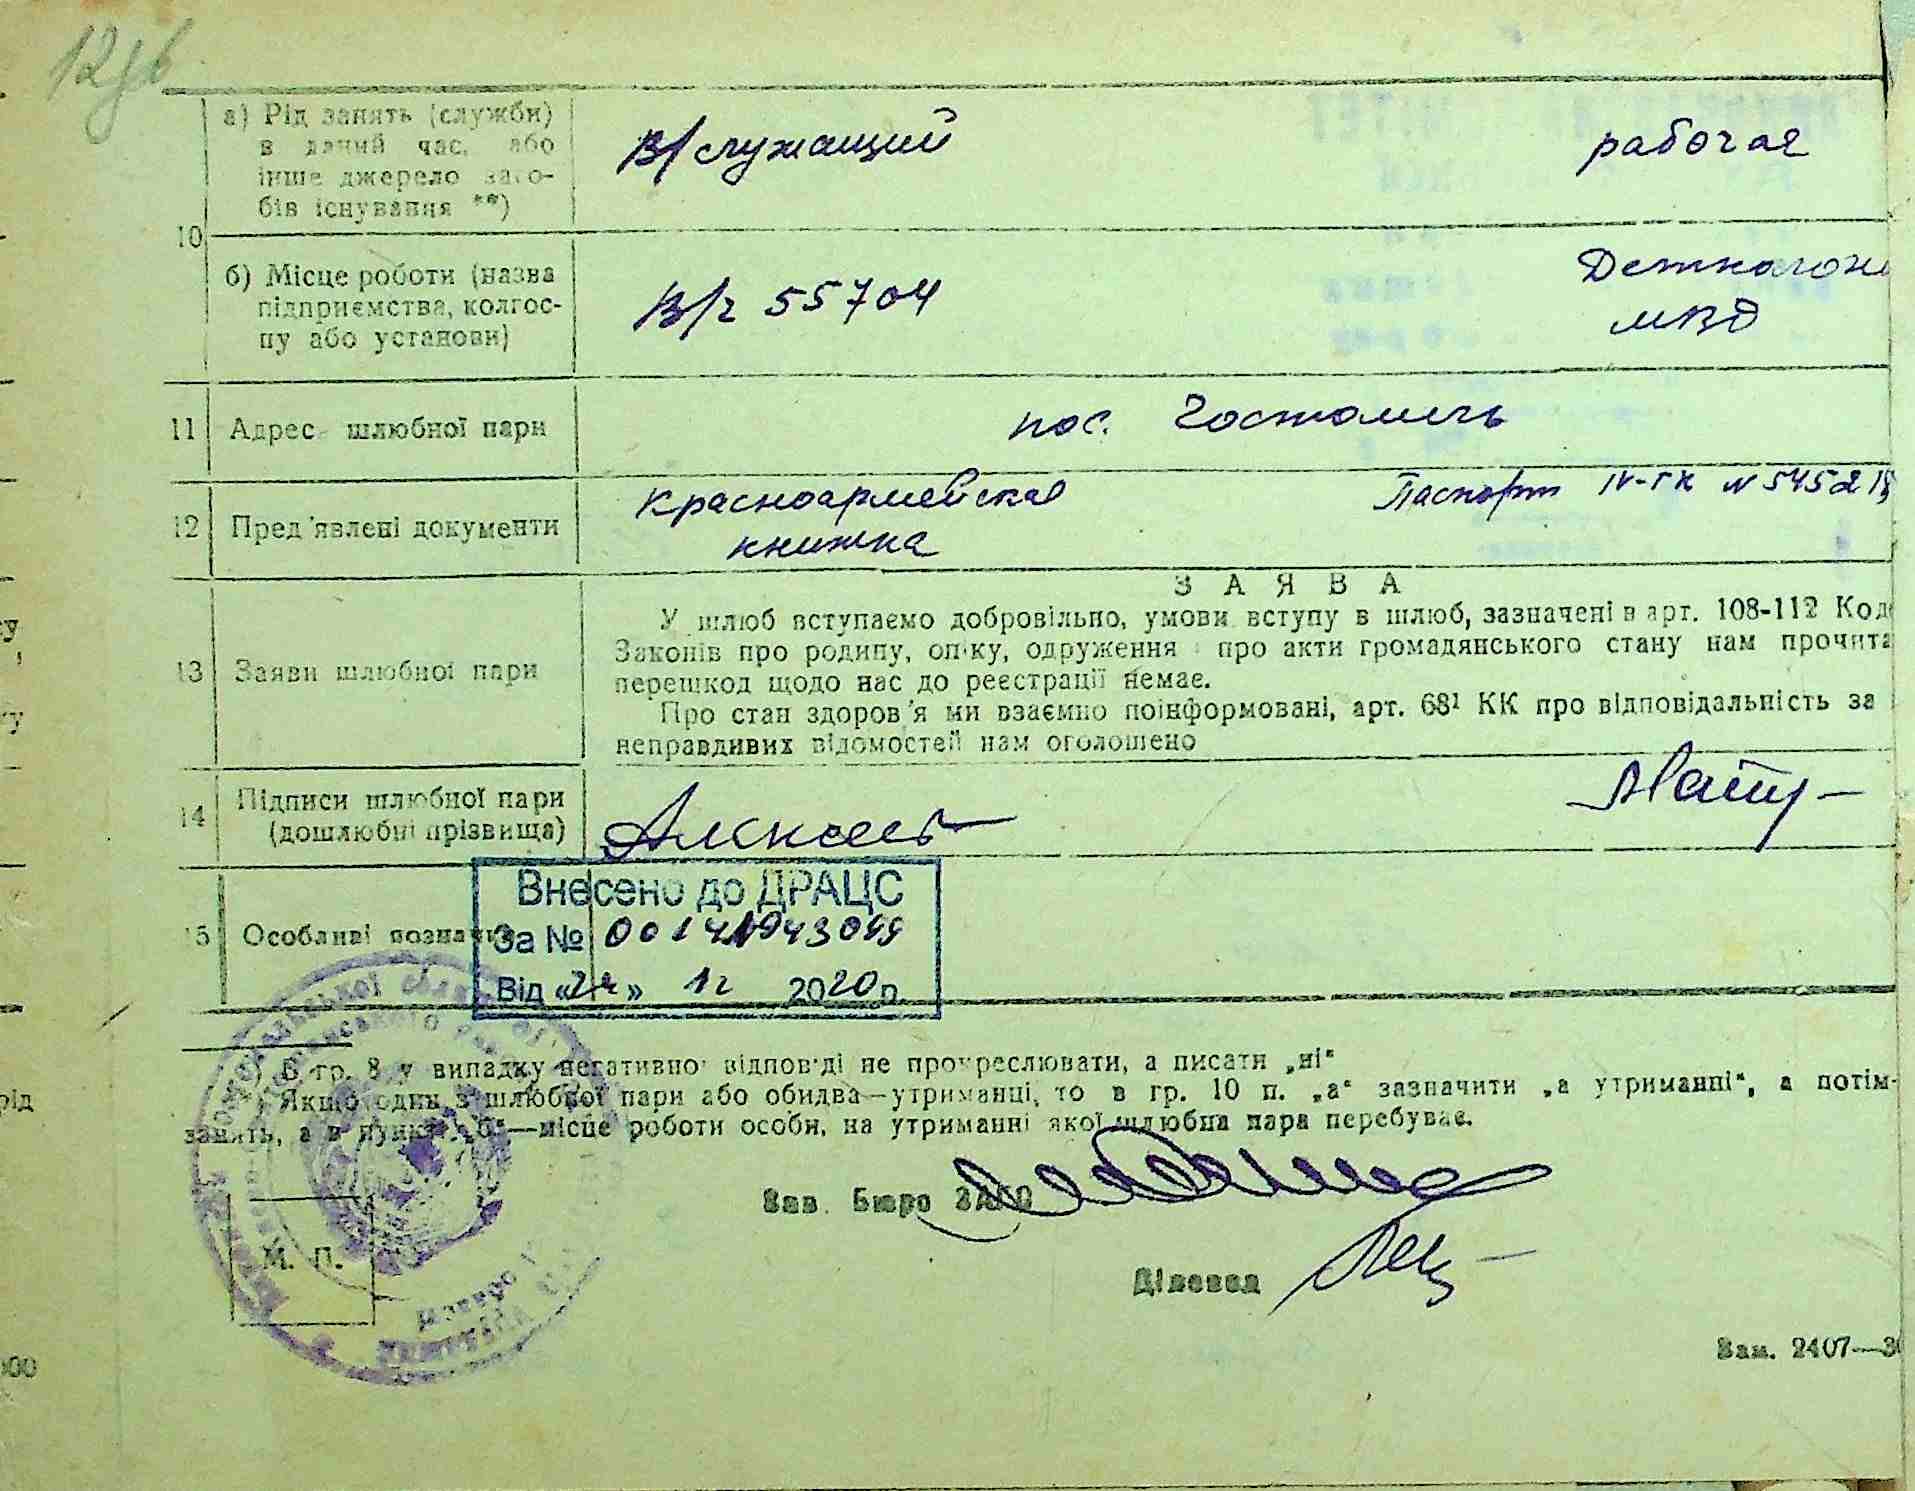 а) Рід занять (служби)
в даний час, або
інше джерело засо-
бів існування **)
В/служащий
рабочая
10
б) Місце роботи (назва
підприємства, колгос-
пу або установи)
В/ч 55704
Детколони
МВД
11
Адрес шлюбної пари
пос. Гостомель
12
Пред'явлені документи
Красноармейская
книжка
Паспорт IV-ГК N 54521
13
Заяви шлюбної пари
ЗАЯВА
У шлюб вступаємо добровільно, умови вступу в шлюб, зазначені в арт. 108-112 Код
Законів про родину, опіку, одруження про акти громадянського стану нам прочита
перешкод щодо нас до реєстрації немає.
Про стан здоров'я ми взаємно поінформовані, арт. 68¹ КК про відповідальність за
неправдивих відомостей нам оголошено
14
Підписи шлюбної пари
(дошлюбні прізвища)
Алексеев
15
Особливі познач
Внесено до ДРАЦС
За №
Від « » 12 2020 р.
В гр. 8 у випадку негативної відповіді не прокреслювати, а писати „ні"
Якщо один з шлюбної пари або обидва—утриманці, то в гр. 10 п. „а" зазначити „а утриманні", а потім
занять, а в пункті „б"—місце роботи особи, на утриманні якої шлюбна пара перебуває.
Зав. Бюро ЗАГС
М. П.
Діловод
Зам. 2407—3